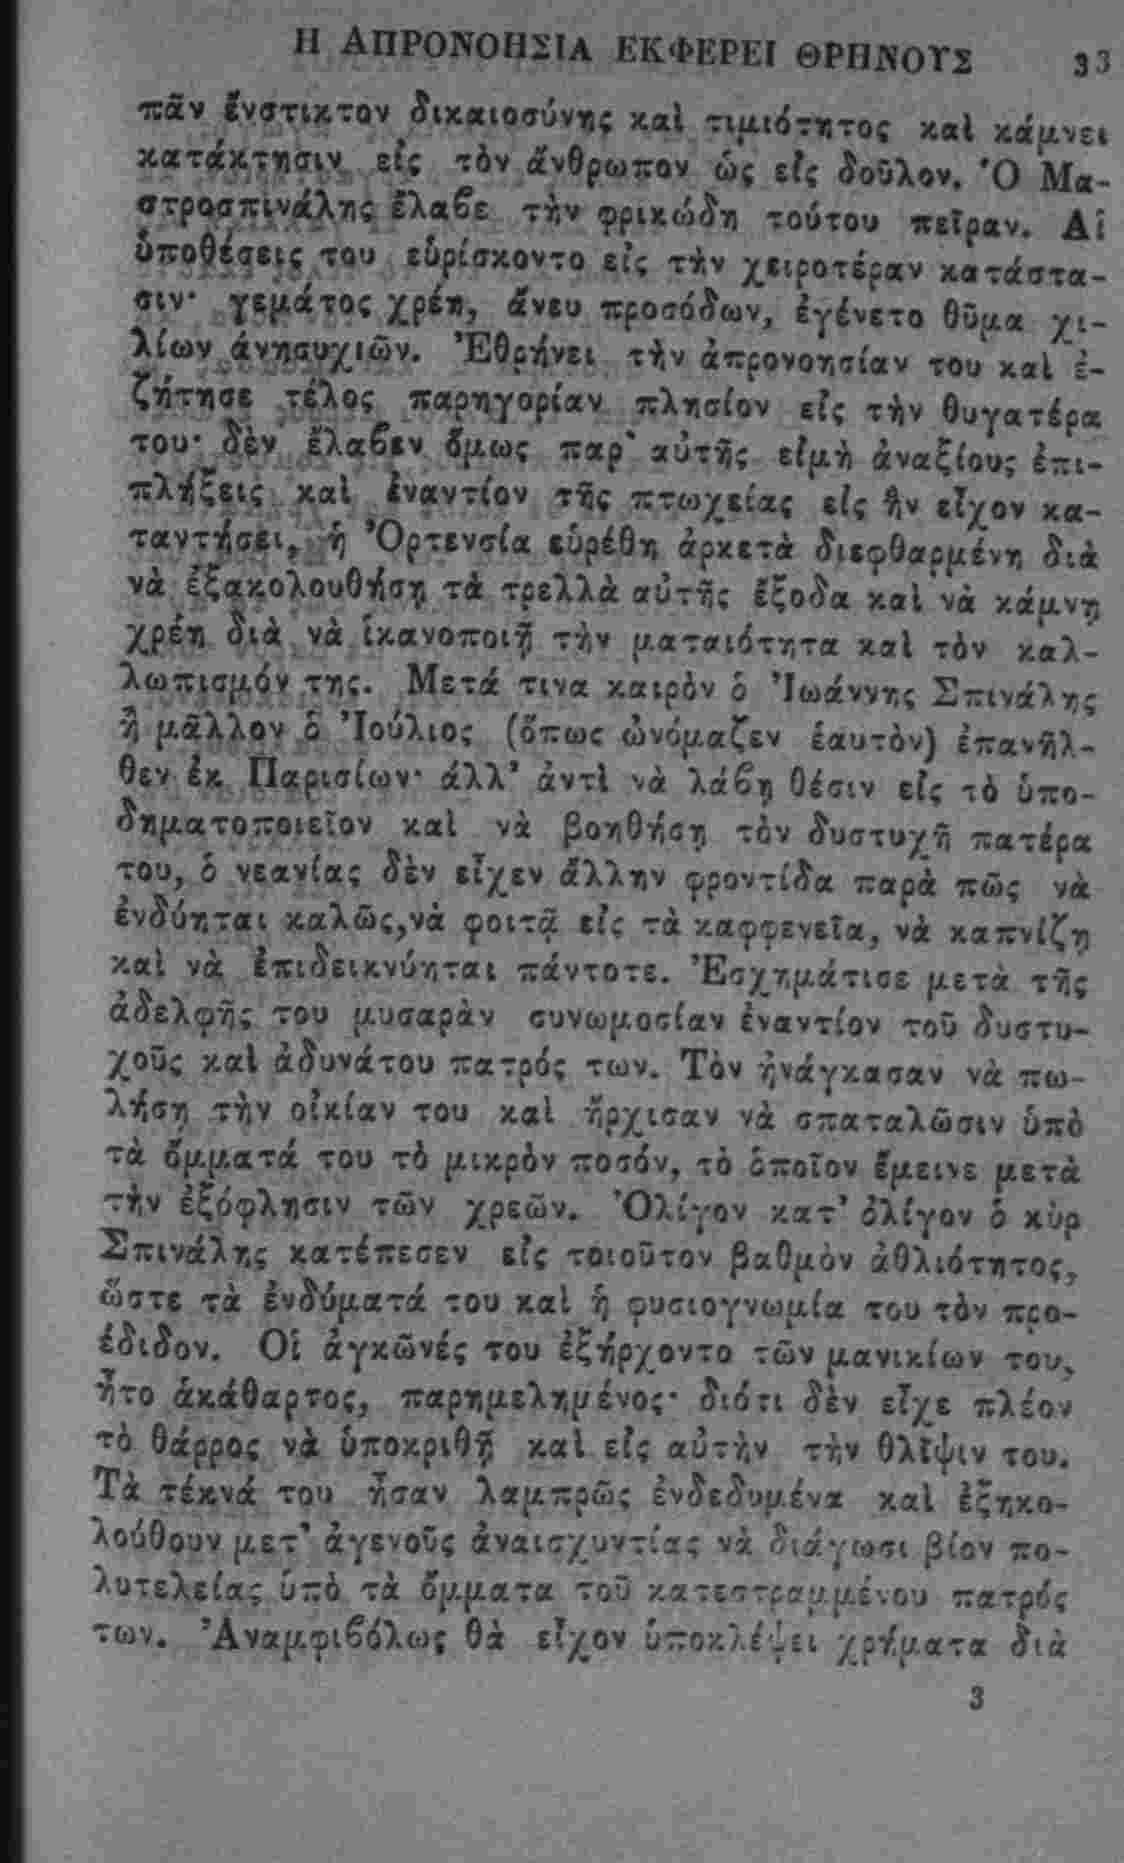 Η ΑΠΡΟΝΟΗΣΙΑ ΕΚΦΕΡΕΙ ΘΡΗΝΟΥΣ 33
πᾶν ἔνστικτον δικαιοσύνης καὶ τιμιότητος καὶ κάμνει
κατάκτησιν εἰς τὸν ἄνθρωπον ὡς εἰς δοῦλον. Ὁ Μα-
στροσπινάλης ἔλαβε τὴν φρικώδη τούτου πεῖραν. Αἱ
ὑποθέσεις του εὑρίσκοντο εἰς τὴν χειροτέραν κατάστα-
σιν· γεμάτος χρέη, ἄνευ προσόδων, ἐγένετο θῦμα χι-
λίων ἀνησυχιῶν. Ἐθρήνει τὴν ἀπρονοησίαν του καὶ ἐ-
ζήτησε τέλος παρηγορίαν πλησίον εἰς τὴν θυγατέρα
του· δὲν ἔλαβεν ὅμως παρ' αὐτῆς εἰμὴ ἀναξίους ἐπι-
πλήξεις καὶ ἐναντίον τῆς πτωχείας εἰς ἣν εἶχον κα-
ταντήσει, ἡ Ὀρτενσία εὑρέθη ἀρκετὰ διεφθαρμένη διὰ
νὰ ἐξακολουθήσῃ τὰ τρελλὰ αὐτῆς ἔξοδα καὶ νὰ κάμνῃ
χρέη διὰ νὰ ἱκανοποιῇ τὴν ματαιότητα καὶ τὸν καλ-
λωπισμόν της. Μετά τινα καιρὸν ὁ Ἰωάννης Σπινάλης
ἢ μᾶλλον ὁ Ἰούλιος (ὅπως ὠνόμαζεν ἑαυτὸν) ἐπανῆλ-
θεν ἐκ Παρισίων· ἀλλ' ἀντὶ νὰ λάβῃ θέσιν εἰς τὸ ὑπο-
δηματοποιεῖον καὶ νὰ βοηθήσῃ τὸν δυστυχῆ πατέρα
του, ὁ νεανίας δὲν εἶχεν ἄλλην φροντίδα παρὰ πῶς νὰ
ἐνδύηται καλῶς,νὰ φοιτᾷ εἰς τὰ καφφενεῖα, νὰ καπνίζῃ
καὶ νὰ ἐπιδεικνύηται πάντοτε. Ἐσχημάτισε μετὰ τῆς
ἀδελφῆς του μυσαρὰν συνωμοσίαν ἐναντίον τοῦ δυστυ-
χοῦς καὶ ἀδυνάτου πατρός των. Τὸν ἠνάγκασαν νὰ πω-
λήσῃ τὴν οἰκίαν του καὶ ἤρχισαν νὰ σπαταλῶσιν ὑπὸ
τὰ ὄμματά του τὸ μικρὸν ποσόν, τὸ ὁποῖον ἔμεινε μετὰ
τὴν ἐξόφλησιν τῶν χρεῶν. Ὀλίγον κατ' ὀλίγον ὁ κὺρ
Σπινάλης κατέπεσεν εἰς τοιοῦτον βαθμὸν ἀθλιότητος,
ὥστε τὰ ἐνδύματά του καὶ ἡ φυσιογνωμία του τὸν προ-
έδιδον. Οἱ ἀγκῶνές του ἐξήρχοντο τῶν μανικίων του,
ἦτο ἀκάθαρτος, παρημελημένος· διότι δὲν εἶχε πλέον
τὸ θάρρος νὰ ὑποκριθῇ καὶ εἰς αὐτὴν τὴν θλῖψιν του.
Τὰ τέκνά του ἦσαν λαμπρῶς ἐνδεδυμένα καὶ ἐξηκο-
λούθουν μετ' ἀγενοῦς ἀναισχυντίας νὰ διάγωσι βίον πο-
λυτελείας ὑπὸ τὰ ὄμματα τοῦ κατεστραμμένου πατρός
των. Ἀναμφιβόλως θὰ εἶχον ὑποκλέψει χρήματα διὰ
3